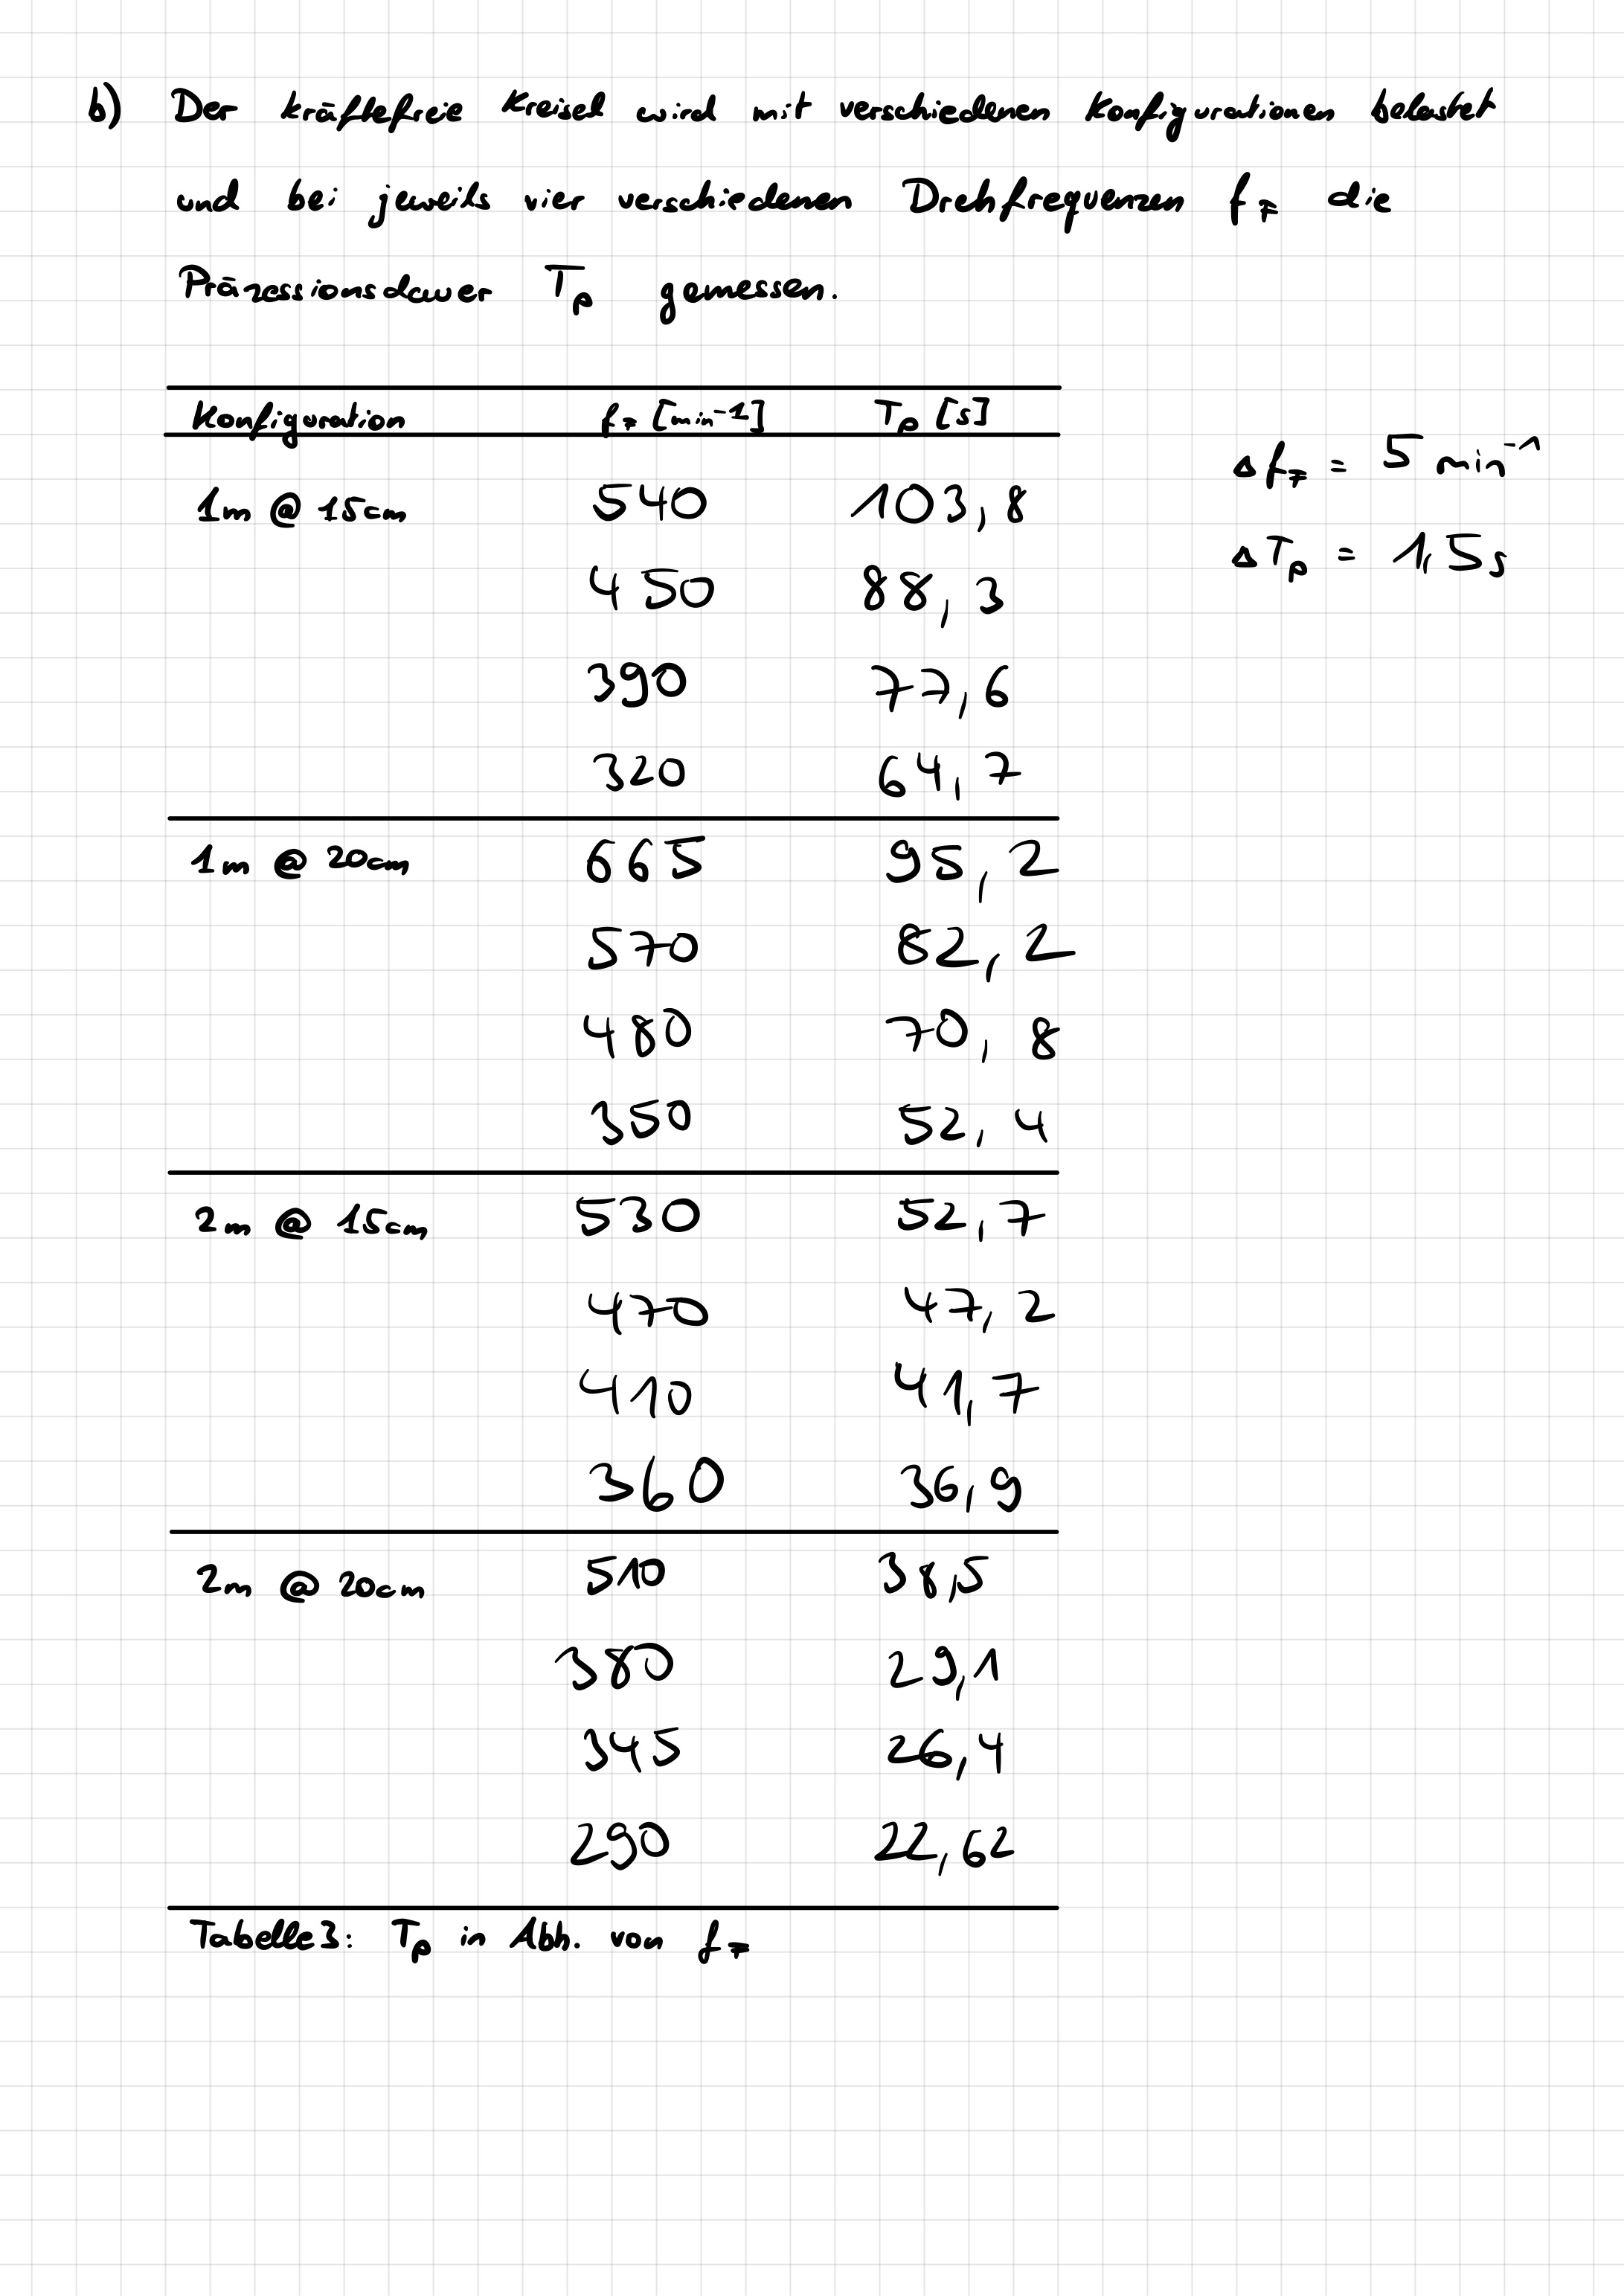 b) Der kräftefreie Kreisel wird mit verschiedenen Konfigurationen belastet
und bei jeweils vier verschiedenen Drehfrequenzen f_F die
Präzessionsdauer T_P gemessen.
Konfiguration f_F [min⁻¹] T_P [s]
Δf_F = 5 min⁻¹
1m @ 15cm 540 103,8
ΔT_P = 1,5s
450 88,3
390 77,6
320 64,7
1m @ 20cm 665 95,2
570 82,2
480 70,8
350 52,4
2m @ 15cm 530 52,7
470 47,2
410 41,7
360 36,9
2m @ 20cm 510 38,5
380 29,1
345 26,4
290 22,62
Tabelle 3: T_P in Abh. von f_F